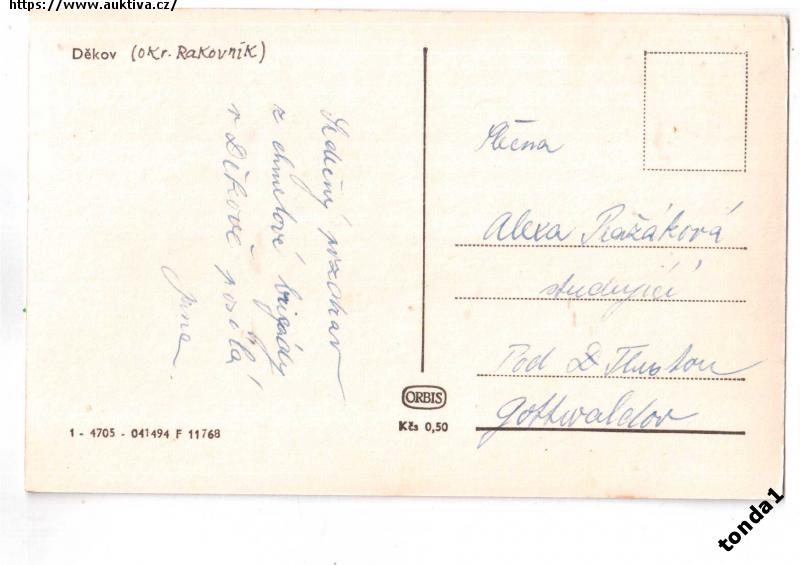 https://www.auktiva.cz/
Děkov (okr. Rakovník)
Srdečný pozdrav
z chmelové brigády
v Děkově posílá
Jana.
Slečna
Alexa Ražáková
studující
Pod Tlustou
Gottwaldov
ORBIS
Kčs 0,50
1 - 4705 - 041494 F 11768
tonda1